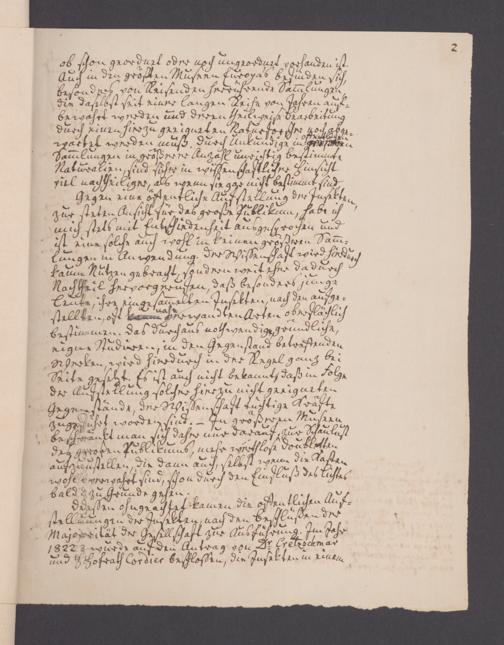 2
ob schon geordnet oder noch ungeordnet vorhanden ist.
Auch in den größten Museen Europas befinden sich,
besonders von Reisenden herrührende Sammlungen,
die daselbst seit einer langen Reihe von Jahren auf-
bewahrt werden und deren theilweise Bearbeitung
durch einen hierzu geeigneten Naturforscher noch abge-
wartet werden muß. Durch Unkundige in öffentlichen
Samlungen in größerer Anzahl unrichtig bestimmte
Naturalien, sind sicher in wissenschaftlicher Hinsicht
viel nachtheiliger, als wenn sie gar nicht bestimmt sind.
Gegen eine öffentliche Aufstellung der Insekten,
zur steten Ansicht für das große Publikum, habe ich
mich stets mit Entschiedenheit ausgesprochen und
ist eine solche auch wohl in keinen größeren Samm-
lungen in Anwendung. Der Wissenschaft wird hierdurch
kaum Nutzen gebracht, sondern weit eher dadurch
Nachtheil hervorgerufen, daß besonders junge
Leute, ihre eingesammelten Insekten, nach den aufge-
stellten, oft nah verwandten Arten oberflächlich
bestimmen. Das durchaus nothwendige, gründliche,
eigne Studieren, in den Gegenstand betreffenden
Werken, wird hierdurch in der Regel ganz bei
Seite gesetzt. Es ist auch nicht bekannt, daß in Folge
der Aufstellung solcher hierzu nicht geeigneten
Gegenstände, der Wissenschaft tüchtige Kräfte
zugeführt worden sind. – In größeren Museen
beschränkt man sich daher nur darauf, zur Schaulust
des großen Publikums, mehr werthlose Doubletten
aufzustellen, die dann auch, selbst wenn die Kasten
wohl verwahrt sind, schon durch den Einfluß des Lichtes
bald zu Grunde gehen.
Diesem ohngeachtet kamen die öffentlichen Auf-
stellungen der Insekten, nach den Beschlüßen der
Majorität der Gesellschaft zur Ausführung. Im Jahr
1822 wurde auf den Antrag von Dr. Cretzschmar
und Hofrath Cordier beschlossen, die Insekten in einem